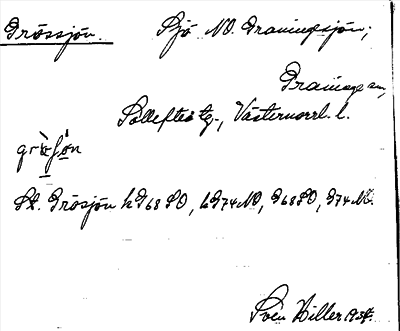 Grössjön. Sjö NV. Graningesjön;
Graninge sn,
Sollefteå tg., Västernorrl. l.
St. Grösjön h968SO, h974NO, 968SO, 974N.
Sven Hiller 1934.